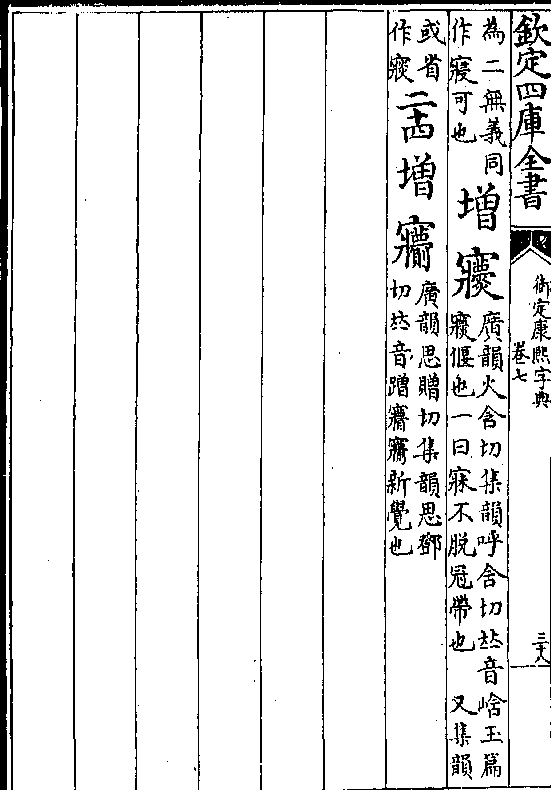 欽定四庫全書
御定康熙字典
卷七
三十八
為二無義同
作可也
增
廣韻火含切集韻呼含切𠀤音玉篇
偃也一曰寐不脫冠帶也 又集韻
或省
作
二十四
增
廣韻思贈切集韻思鄧
切𠀤音蹭新覺也